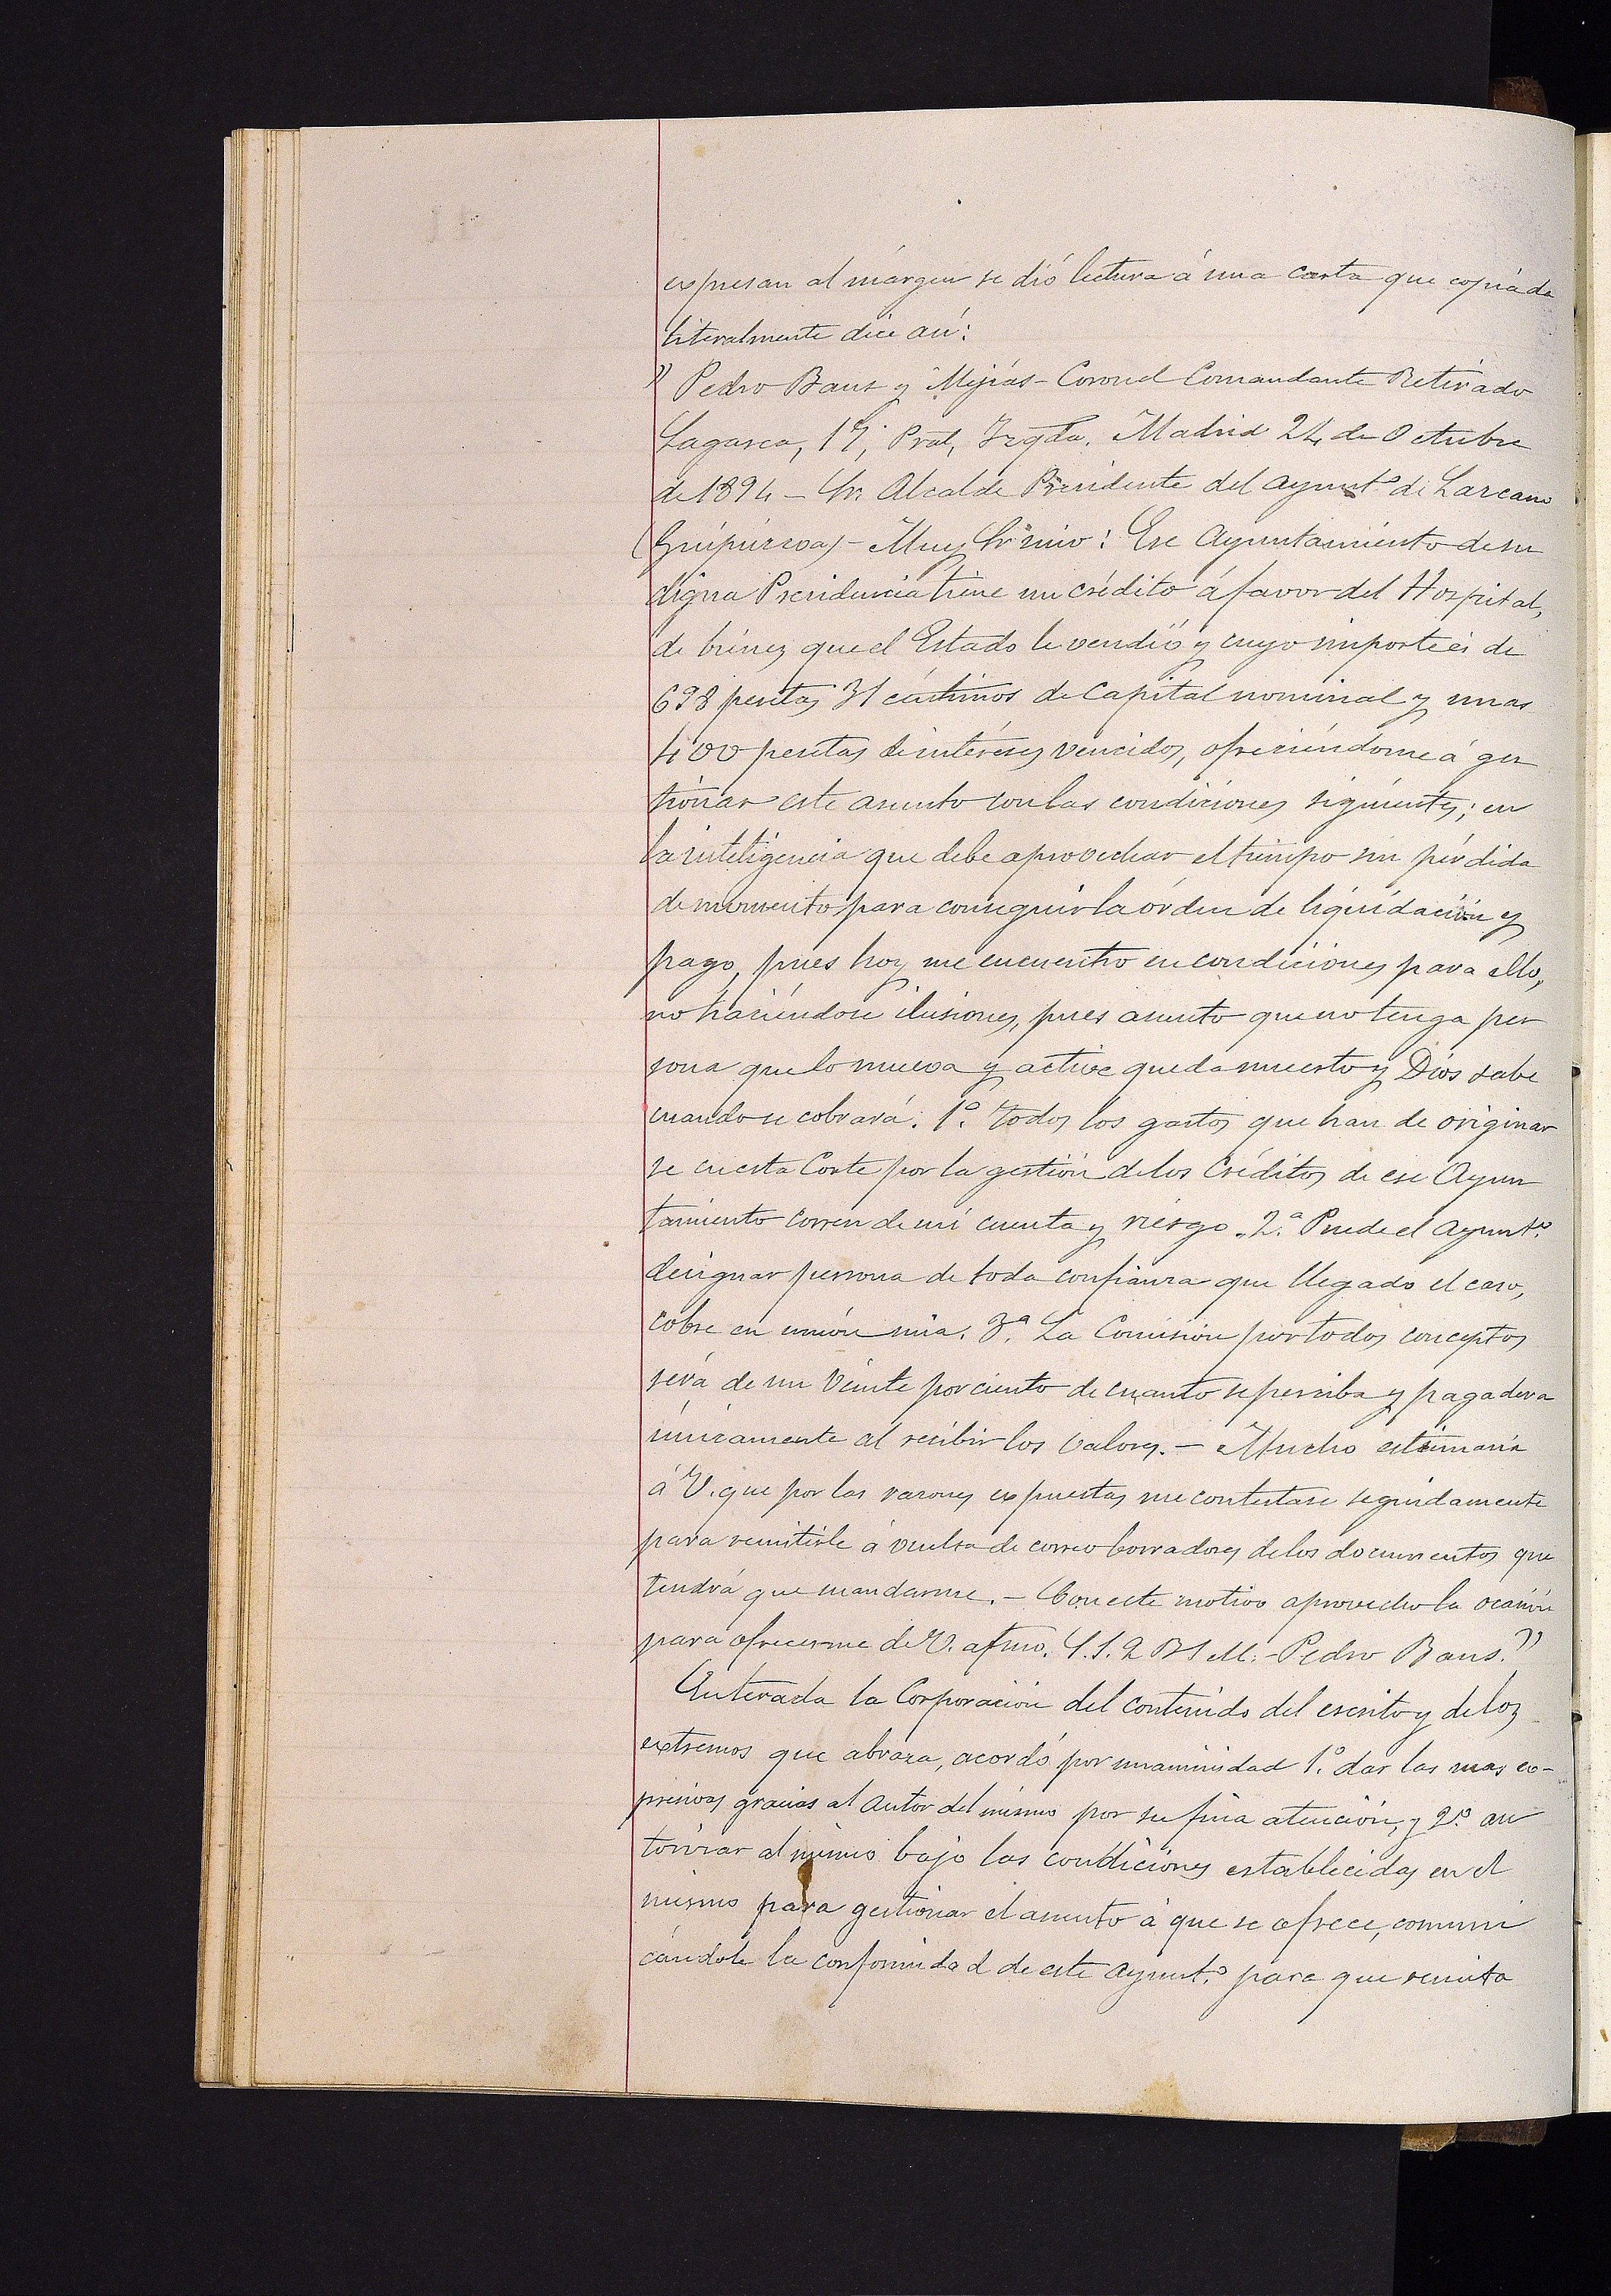 expresan al márgen se dió lectura á una carta que copiada
literalmente dice así:
" Pedro Baus y Mejías - Coronel Comandante Retirado
Lagasca, 17, Pral, Izqda. Madrid 24 de Octubre
de 1894 - Sr. Alcalde Presidente del Ayuntº de Lazcano
(Guipúzcoa) - Muy Sr mio: Ese Ayuntamiento de su
digna Presidencia tiene un crédito á favor del Hospital,
de bienes que el Estado le vendió y cuyo importe es de
698 pesetas 31 céntimos de Capital nominal y unas
400 pesetas de intereses vencidos, ofreciéndome á ges
tionar este asunto con las condiciones siguientes; en
la inteligencia que debe aprovechar el tiempo sin pérdida
de momento para conseguir la órden de liquidación y
pago, pues hoy me encuentro en condiciones para ello,
no haciéndose ilusiones, pues asunto que no tenga per
sona que lo mueva y active queda muerto y Dios sabe
cuando se cobrará. 1º. Todos los gastos que han de originar
se en esta Corte por la gestión de los Créditos de ese Ayun
tamiento corren de mi cuenta y riesgo. 2.ª Puede el Ayuntº.
designar persona de toda confianza que llegado el caso,
cobre en unión mia. 3.ª La Comisión por todos conceptos
será de un Veinte por ciento de cuanto se perciba y pagadera
únicamente al recibir los valores. - Mucho estimaría
á V. que por las razones expuestas me contestase seguidamente
para remitirle á vuelta de correo borradores de los documentos que
tendrá que mandarme. - Con este motivo aprovecho la ocasión
para ofrecerme de V. afmo. S.S. Q B S M. - Pedro Baus."
Enterada la Corporación del contenido del escrito y de los
extremos que abraza, acordó por unanimidad 1º. dar las mas ex-
presivas gracias al autor del mismo por su fina atención, y 2º. au
torizar al mismo bajo las condiciones establecidas en el
mismo para gestionar el asunto á que se ofrece, comuni
cándole la conformidad de este Ayuntº. para que remita